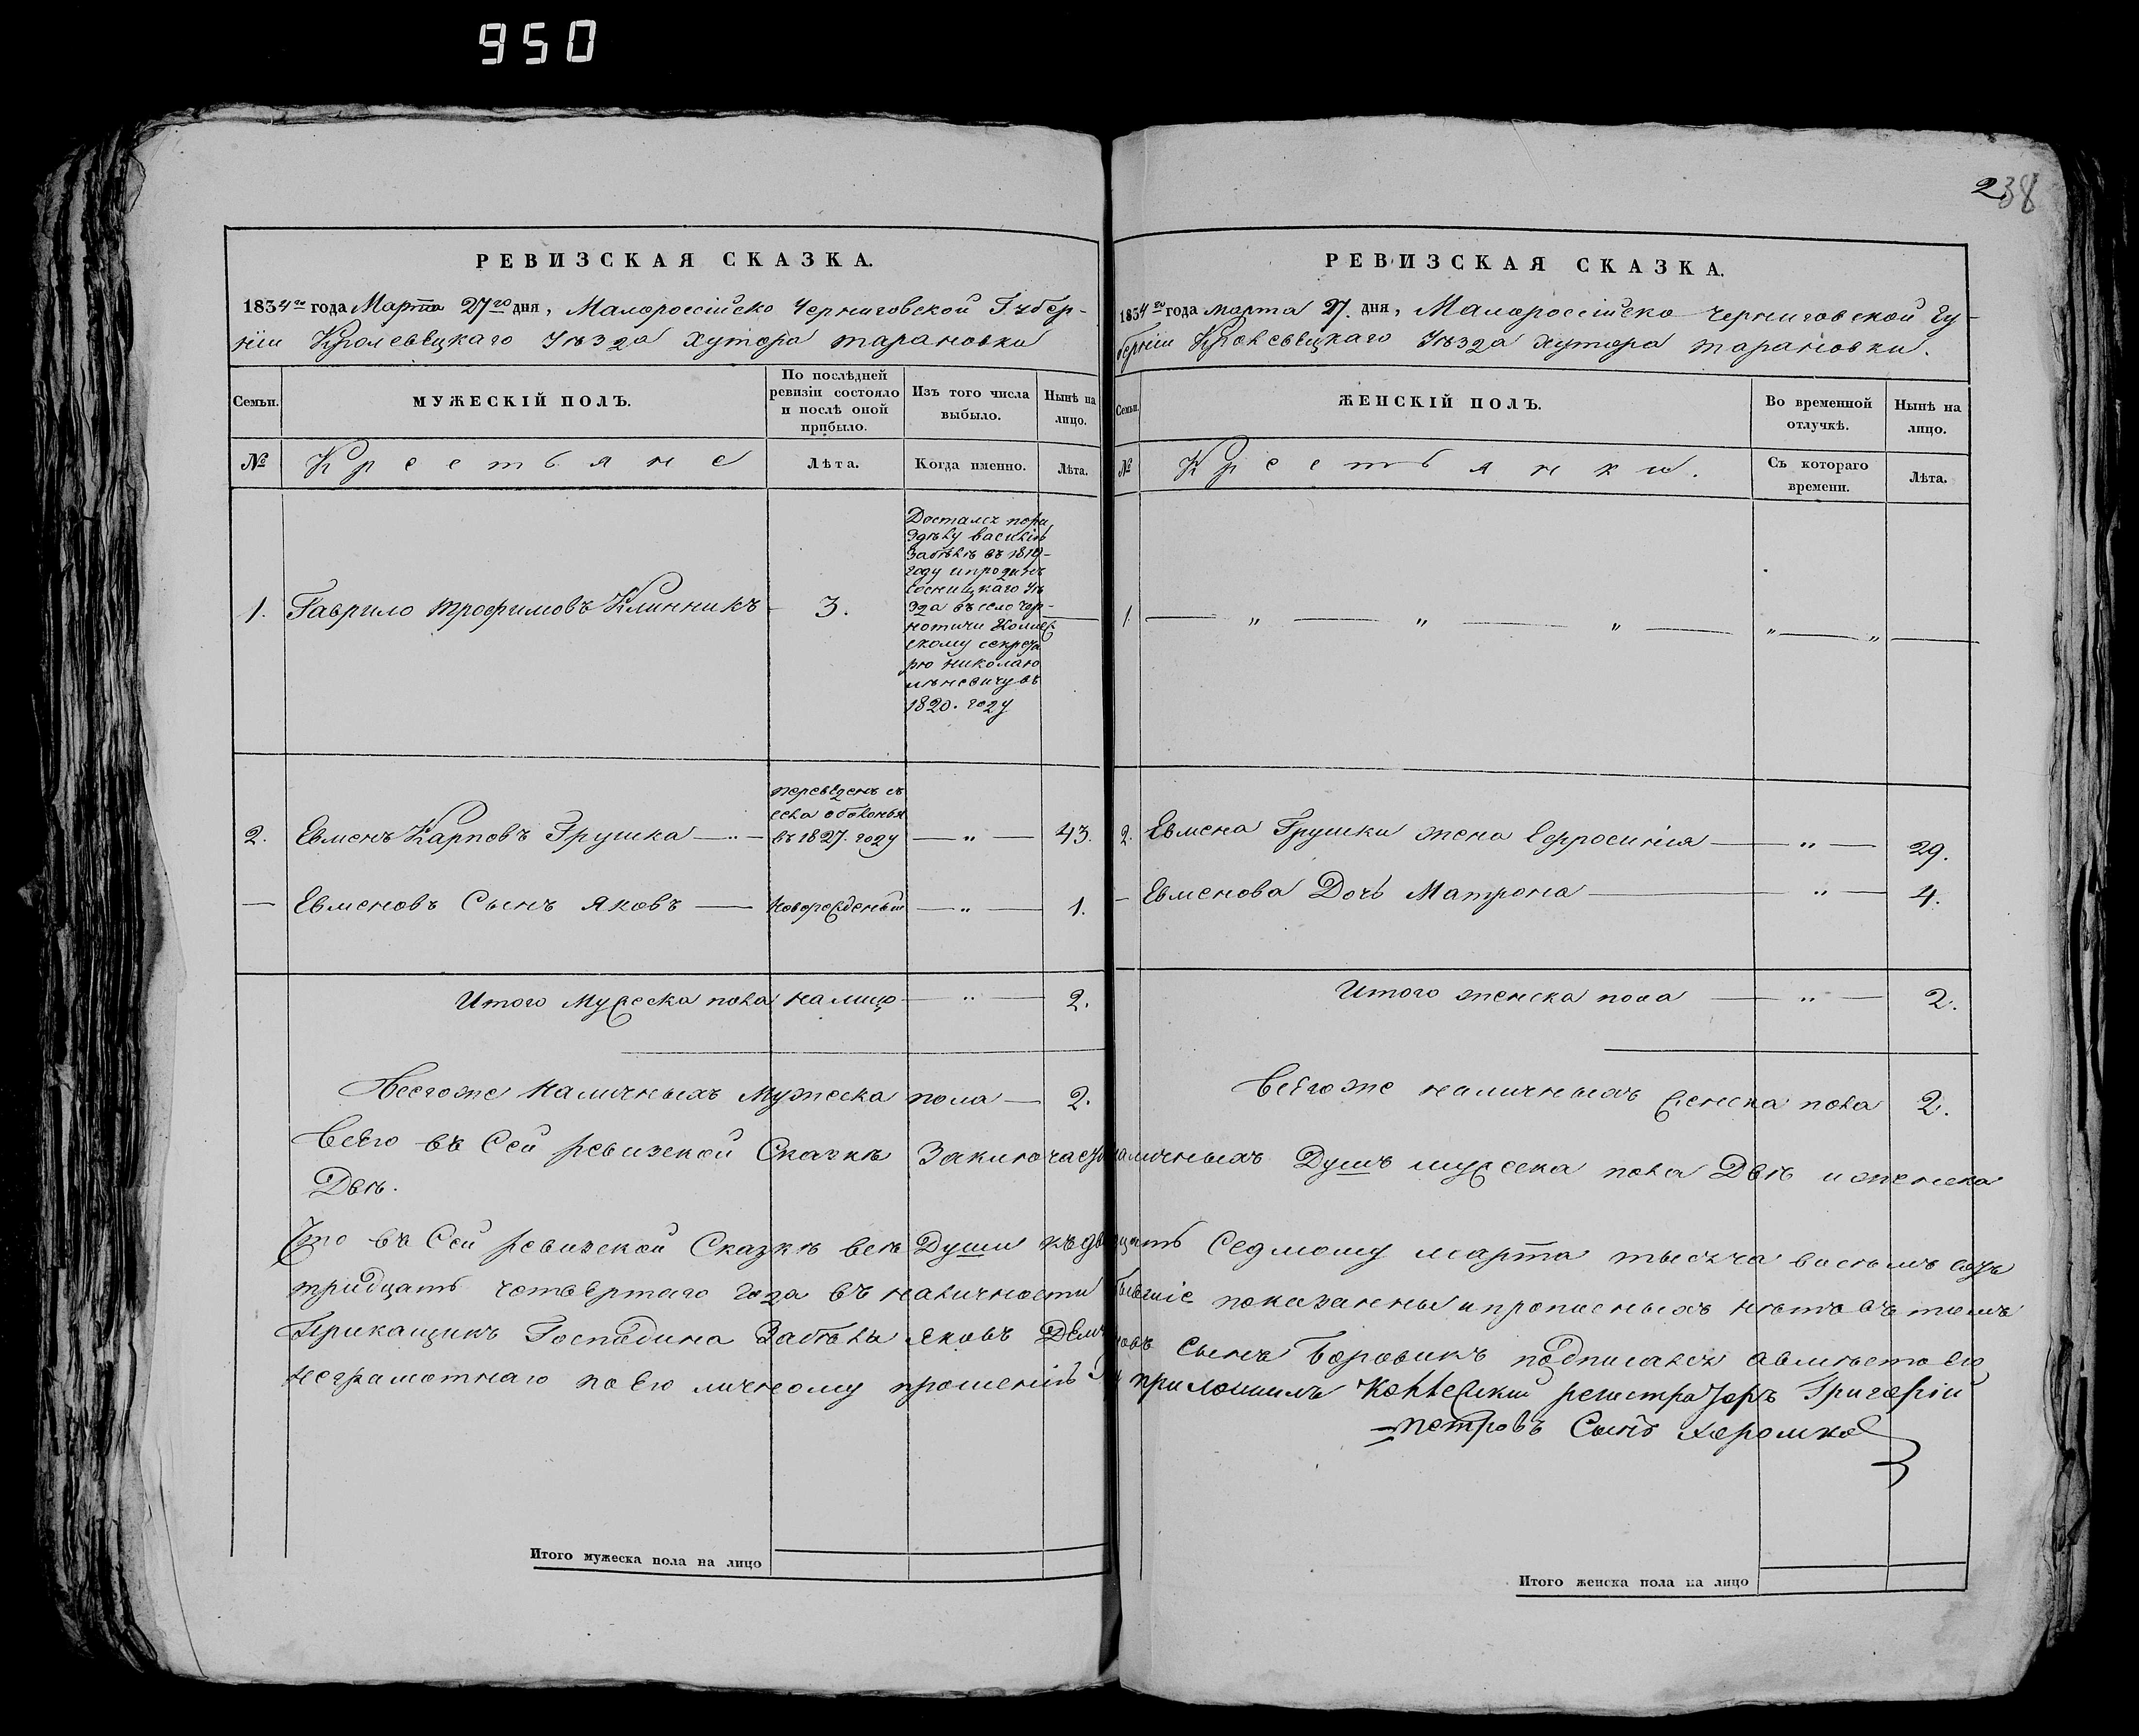 950
238
РЕВИЗСКАЯ СКАЗКА.
1834го года Марта 27го дня, Малороссійско Черниговской Губер-
ніи Кролевецкаго Уѣзда хутора тарановки
Семьи.
МУЖЕСКІЙ ПОЛЪ.
По послѣдней
ревизіи состояло
и послѣ оной
прибыло.
Изъ того числа
выбыло.
Нынѣ на
лицо.
№
Крестьяне
Лѣта.
Когда именно.
Лѣта.
1.
Гаврило трофимовъ Клинникъ
3.
Досталсъ пора
здѣлу василію
Забѣлѣ въ 1819-
году ипроданъ
Сосницкаго уѣ
зда въ село чер-
нотичи Коллеж
скому секрета
рю николаю
въ
1820. году
переведенъ съ
села оболонья
въ 1827. году
2.
Евменъ Карповъ Грушка — " —
— " —
43.
—
Евменовъ Сынъ яковъ —
новорожденный
— " —
1.
Итого Мужеска пола налицо — " — 2.
Всегоже наличныхъ Мужеска пола — 2.
РЕВИЗСКАЯ СКАЗКА.
1834го года марта 27. дня, Малороссійско черниговской гу-
берніи Кролевецкаго Уѣзда хутора тарановки.
Семьи.
ЖЕНСКІЙ ПОЛЪ.
Во временной
отлучкѣ.
Нынѣ на
лицо.
№
Крестьянки.
Съ котораго
времени.
Лѣта.
1. — " — " — " — " — " —
2. Евмена Грушки жена Ефросинія — " — 29.
— Евменова Дочь Матрона — " — 4.
Итого женска пола — " — 2.
Всегоже наличныхъ женска пола 2.
Всего въ Сей ревизской Сказкѣ Заключается наличныхъ Душъ мужеска пола Двѣ иженска
Двѣ.
Что въ Сей ревизской Сказкѣ всѣ Души къ двадцать Седмому марта тысяча восемъ сотъ
тридцать четвертаго года въ наличности бывшіе показанны ипрописныхъ нѣтъ въ томъ
Прикащикъ Господина Забѣлы яковъ Сынъ Боровикъ подписался авмѣсто его
неграмотнаго по Его личному прошенію приложилъ Коллежскій регистраторъ Григорій
петровъ Сынъ Хоромко
Итого мужеска пола на лицо
Итого женска пола на лицо